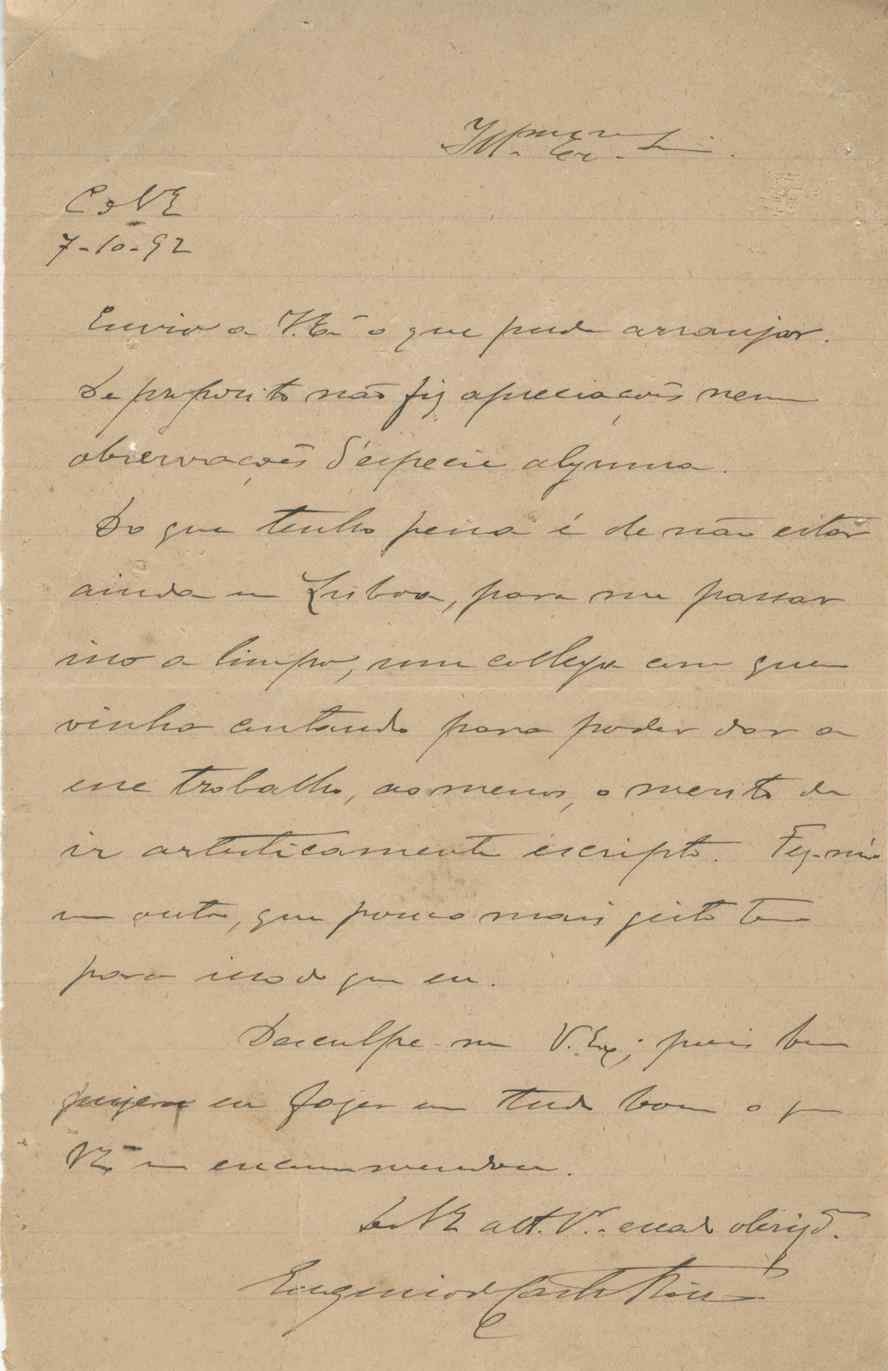 Illmo. Exmo. Sr.
C. de V.E.
7-10-92
Envio a V. Exa o que pude arranjar.
De proposito não fiz apreciacções nem
observações d'especie alguma.
Do que tenho pena é de não estar
ainda em Lisboa, para me passar
isso a limpo, um collega com quem
vinha contando para poder dar a
esse trabalho, ao menos, o merito de
ir artisticamente escripto. Fez-m'o
um outro, que pouco mais geito tem
para isso do que eu.
Desculpe-me V. Ex.; pois bem
quizera eu fazer em tudo bom o q
V.E. me encommendou.
De V.E. att. Vor. e obrigd.
Eugenio de Castro